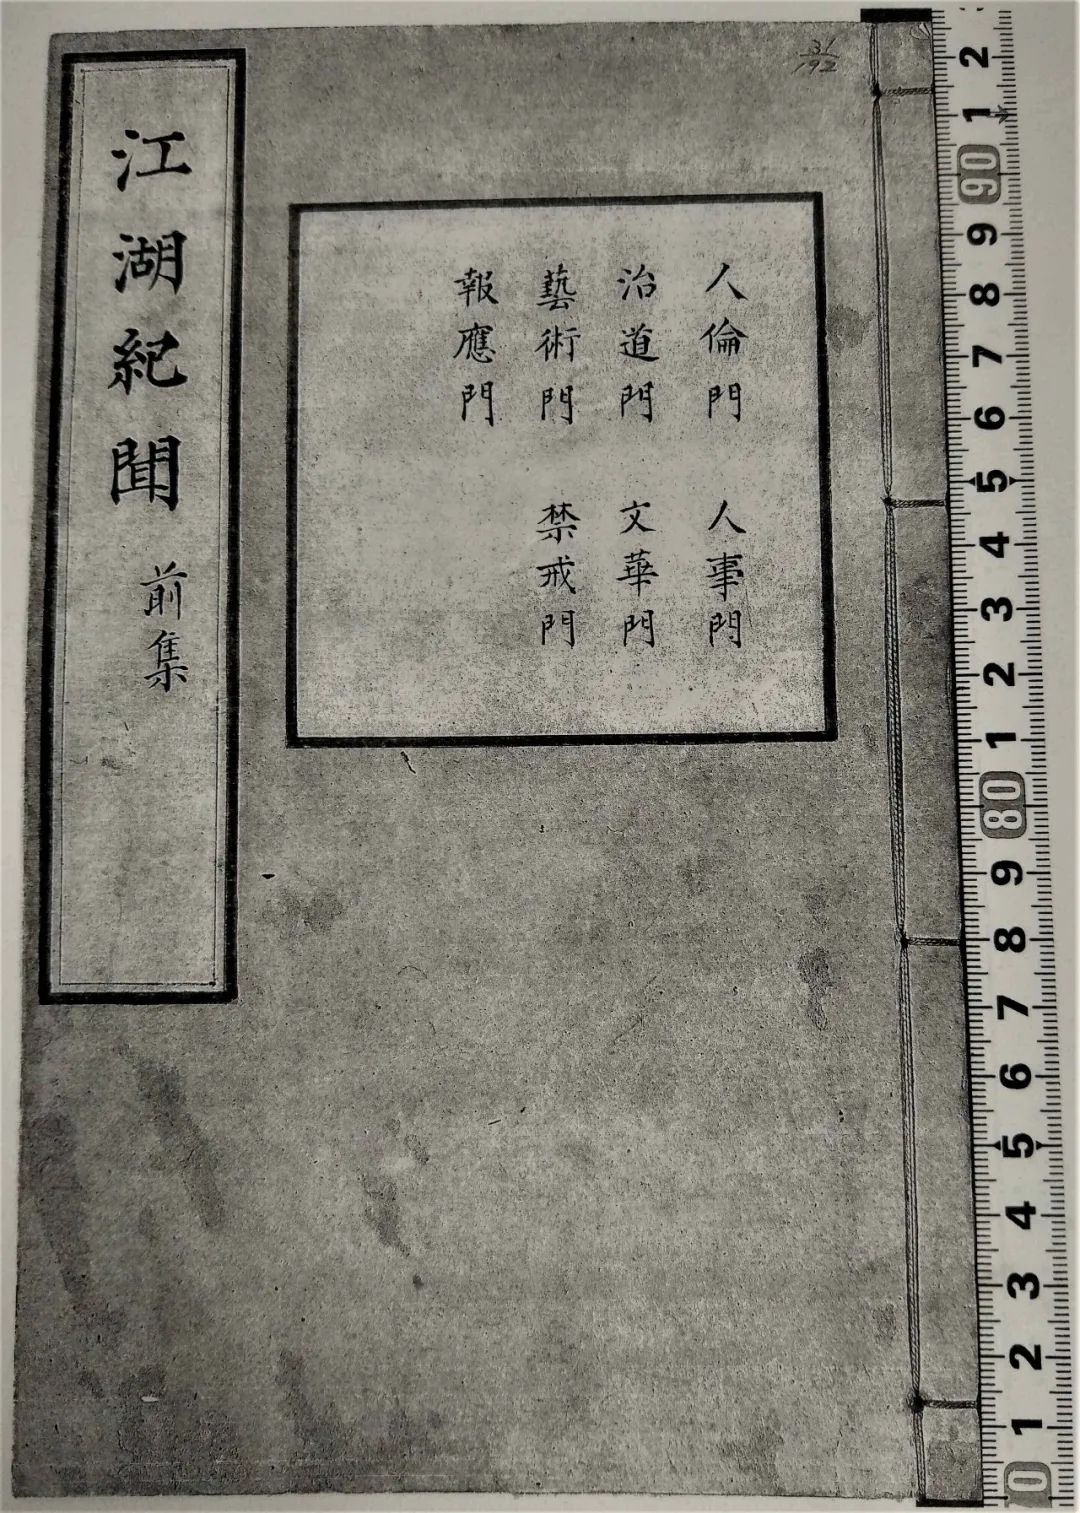 江湖紀聞 前集
人倫門 人事門
治道門 文華門
藝術門 禁戒門
報應門
31
192
2
1
90
9
8
7
6
5
4
3
2
1
80
9
8
7
6
5
4
3
2
1